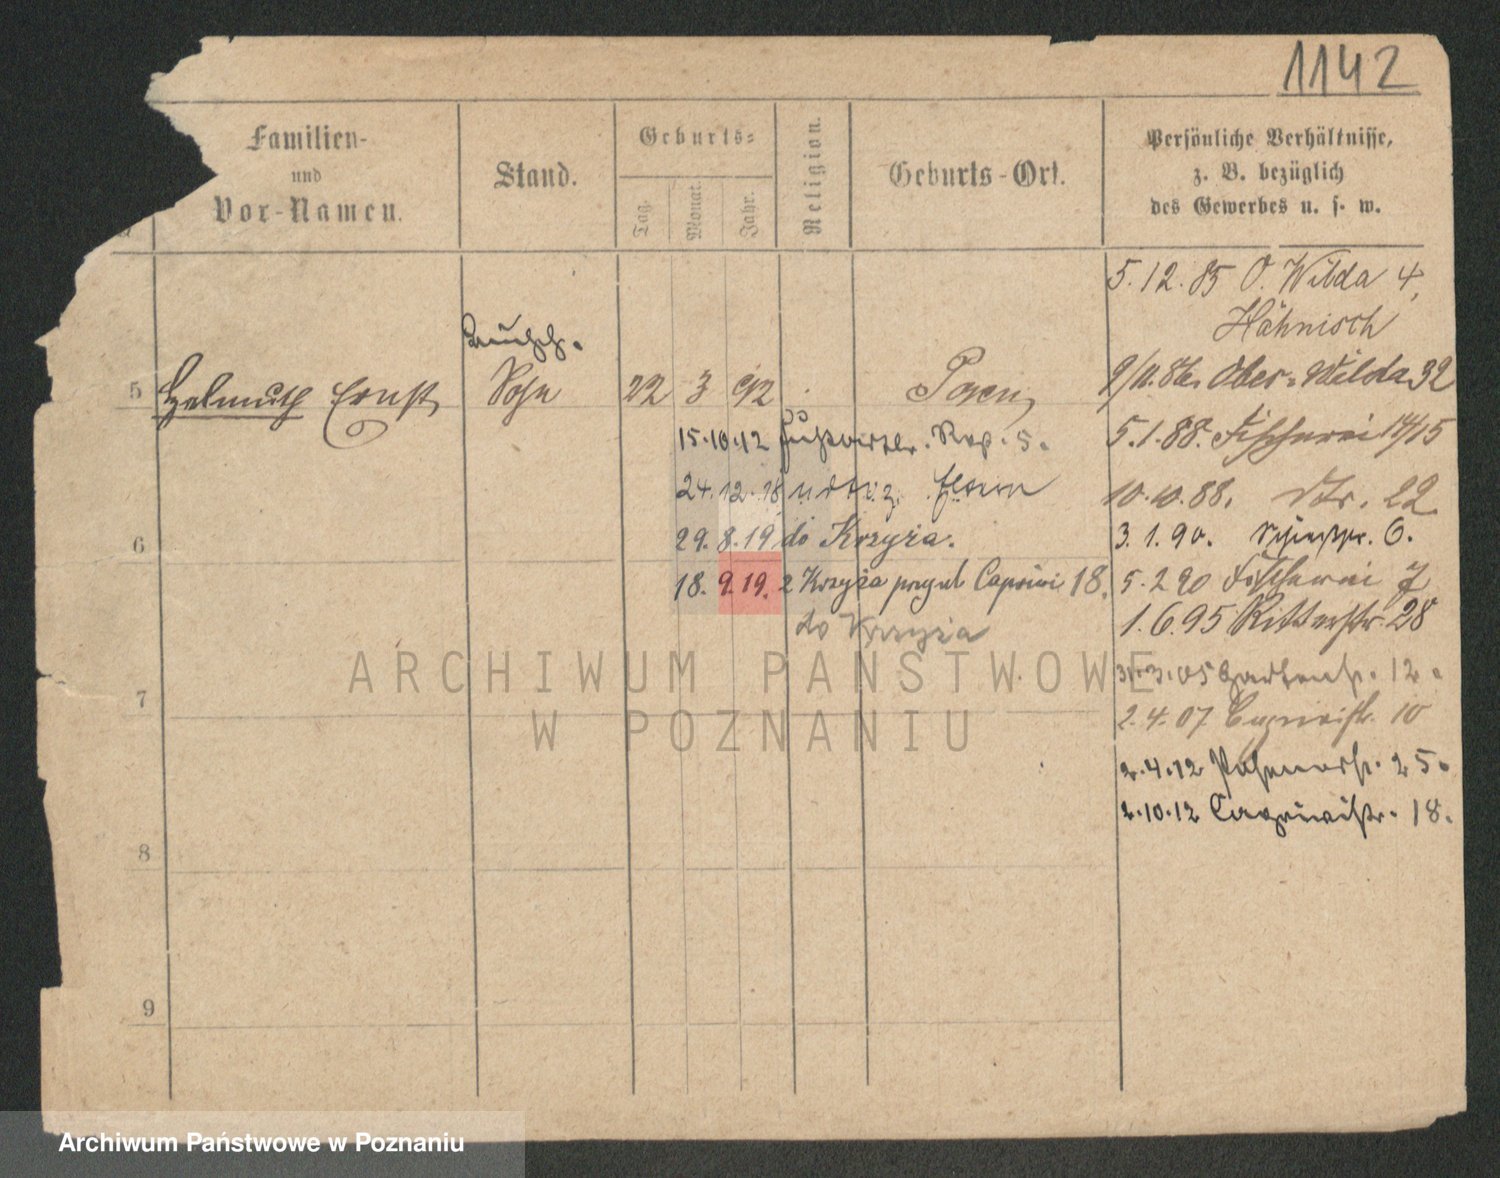 1142
Familien-
und
Vor-Namen.
Stand.
Geburts-
Tag.
Monat.
Jahr.
Religion.
Geburts-Ort.
Persönliche Verhältnisse,
z. B. bezüglich
des Gewerbes u. s. w.
5.12.85 O. Wilda 4,
Hähnisch
5 Helmuth Ernst Sohn 22 3 92 Posen
9/11.86. Ober-Wilda 32
15.10.12
5.1.88. Fischerei 14/15
24.12.18
10.10.88. 22
6
29.8.19. do Krzyża.
3.1.90. 6.
18.9.19. z Krzyża przyb Caprivi 18.
5.2 90 Fischerei 7
do Krzyża
1.6.95 Ritterstr. 28
31.3.05 Gartenstr. 12.
7
2.4.07. 10
2.4.12 25.
2.10.12 Caprivistr. 18.
8
9
ARCHIWUM PAŃSTWOWE
W POZNANIU
Archiwum Państwowe w Poznaniu